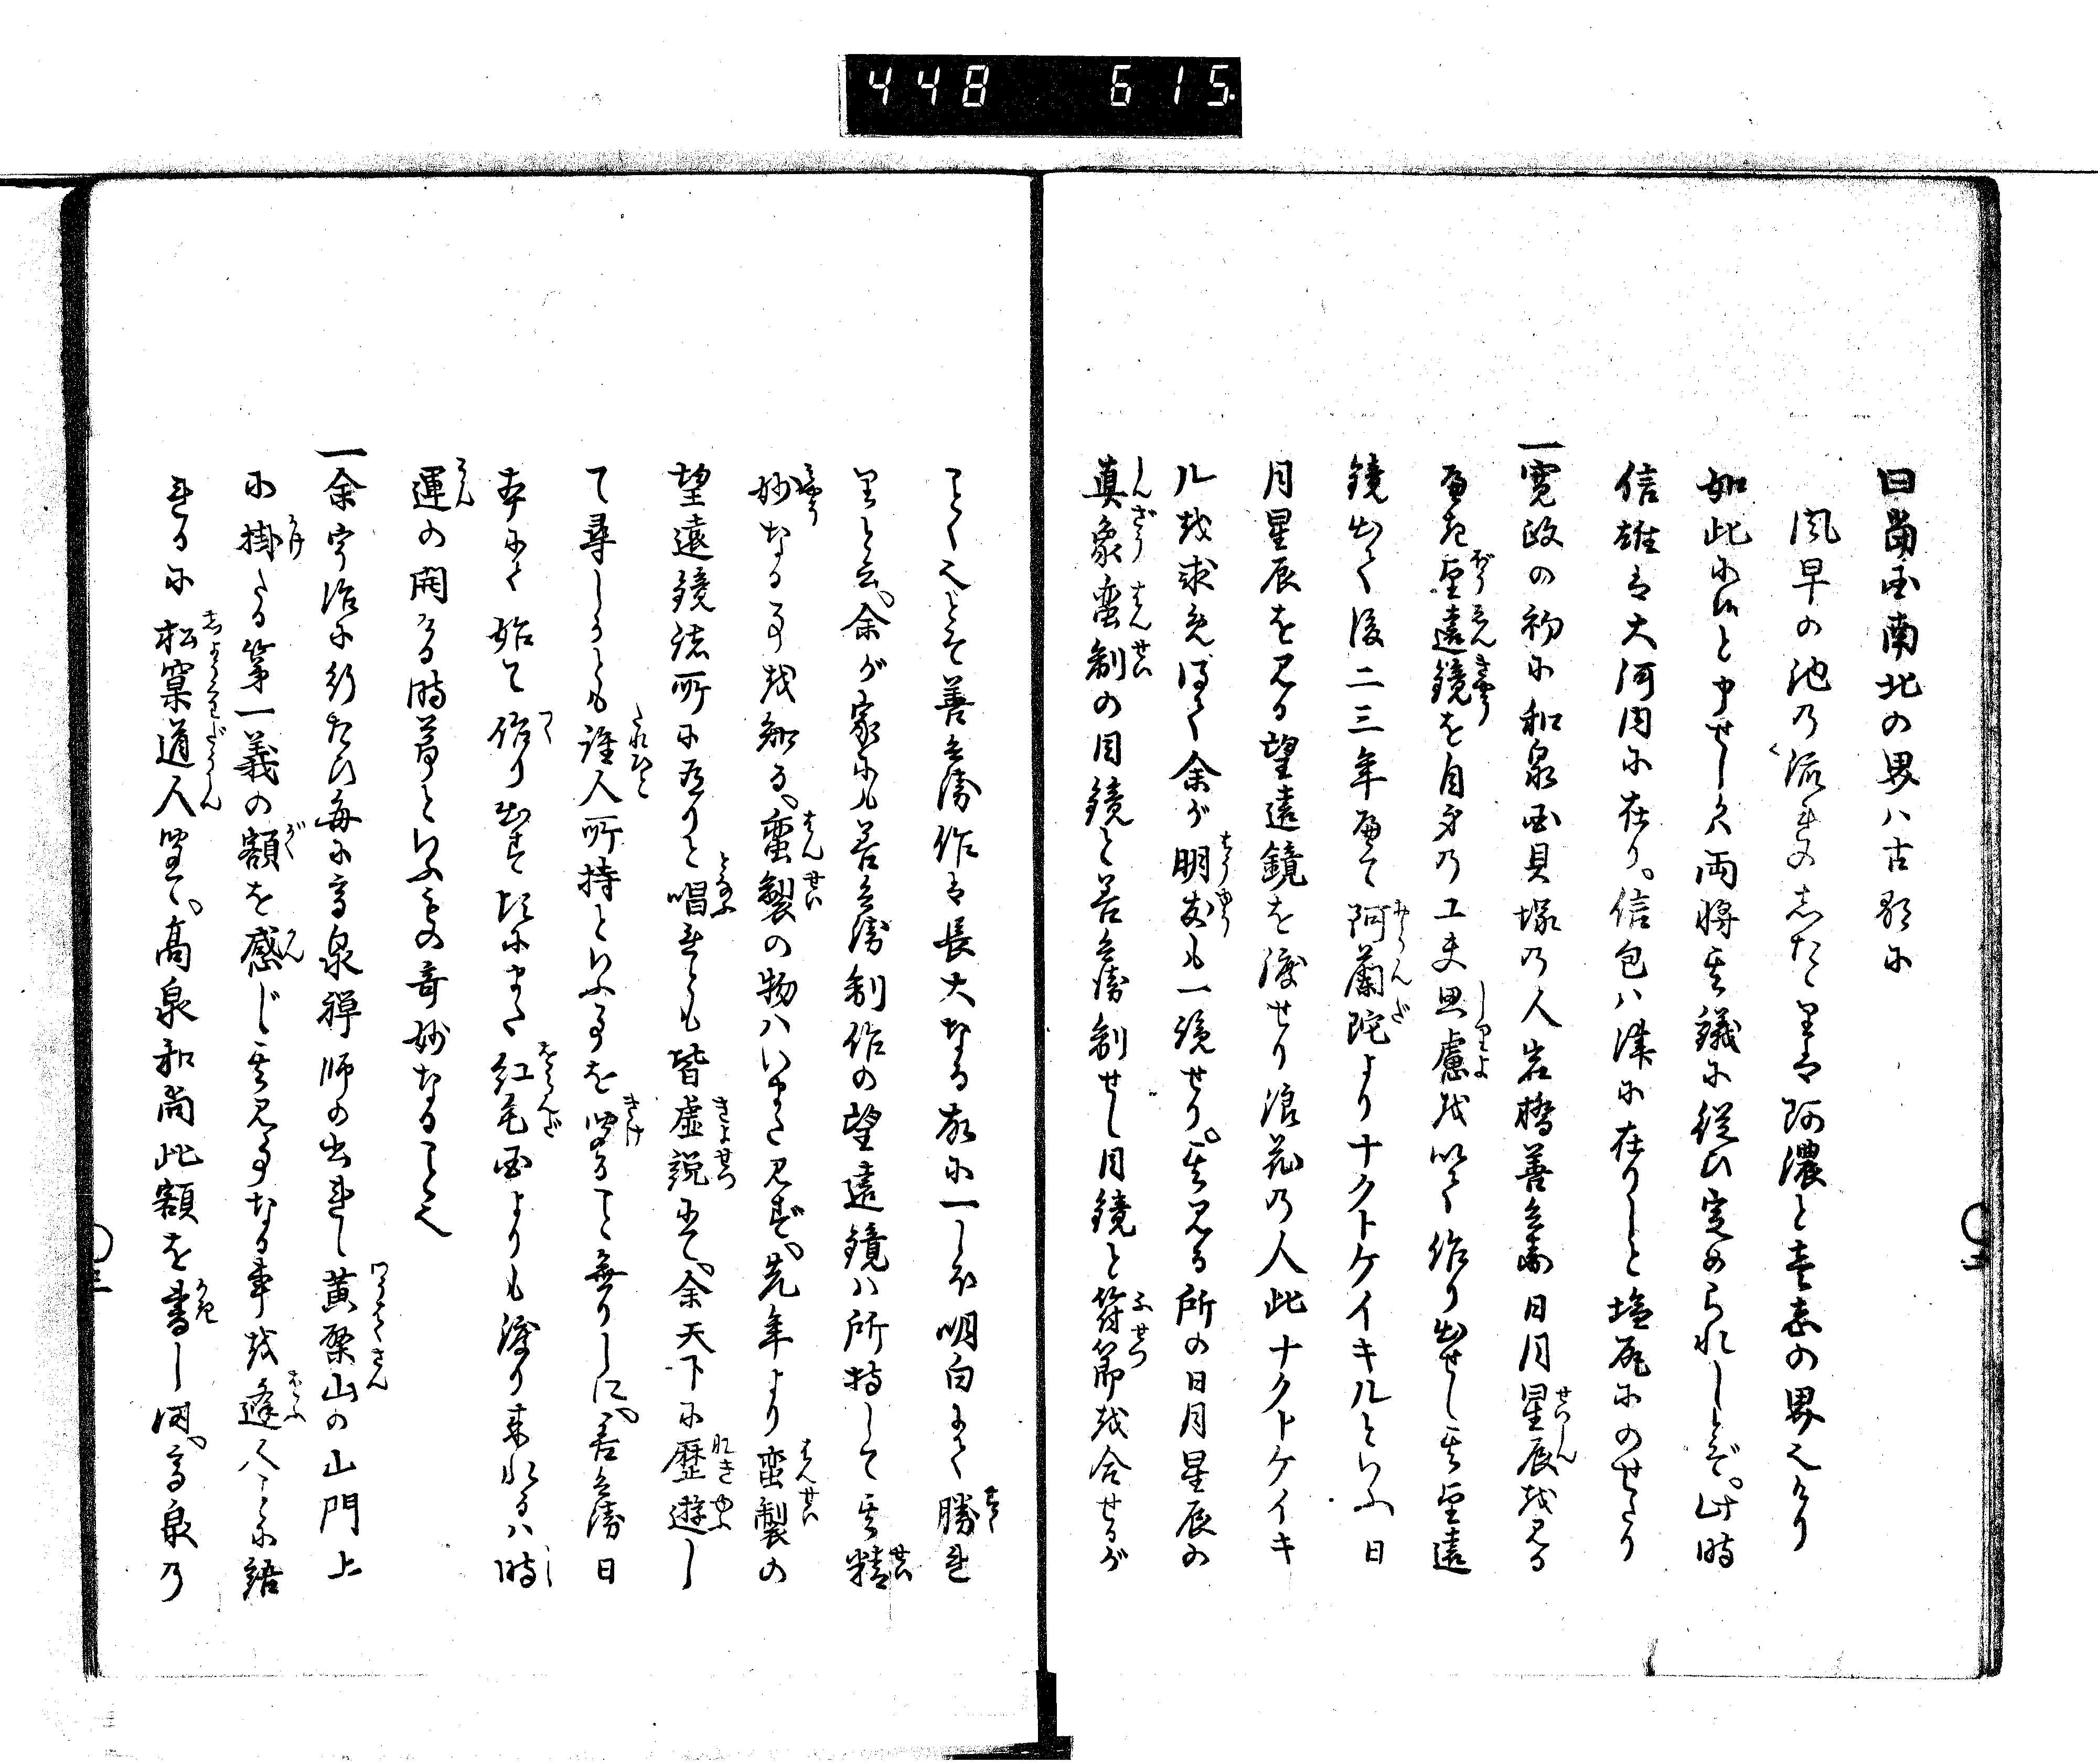 448 615
曰當国南北の界ハ古歌に
風早の池乃流れのしたゝりは阿濃と壱志の界なりけり
如此に候と申せしかバ両将其議に従ひ定められしとぞ。此時
信雄は大河内に在り。信包ハ津に在りしと塩尻にのせたり
一寛政の初に和泉国貝塚乃人岩橋善兵衛日月星辰を見る
べき望遠鏡を自身乃工夫思慮を以て作り出せし其望遠
鏡出て後二三年歴て阿蘭陀よりナクトケイキルといふ日
月星辰を見る望遠鏡を渡せり浪花乃人此ナクトケイキ
ルを求め得て余が朋友も一覧せり。其見る所の日月星辰の
真象蛮制の目鏡と善兵衛制せし目鏡と符節を合せるが
ことくなれとも善兵衛作は長大なる故に一しほ明白にて勝れ
りと云、余が家にも善兵衛制作の望遠鏡ハ所持して其精
妙なる事を知る、蛮製の物ハいまだ見ず、先年より蛮製の
望遠鏡諸所に有りと唱れとも皆虚説にて、余天下に歴遊し
て尋しかとも誰人所持といふ事を聞ること無りしに、善兵衛日
本にて始て作り出すたにまた紅毛国よりも渡り来れるハ時
運の開る時節といふもの奇妙なることなり
一余宇治に行たひ毎に高泉禅師の書れし黄檗山の山門上
に掛たる第一義の額を感じ其見事なる事を逢人ことに語
れるに松窠道人聞て、高泉和尚此額を書し時、高泉乃
三